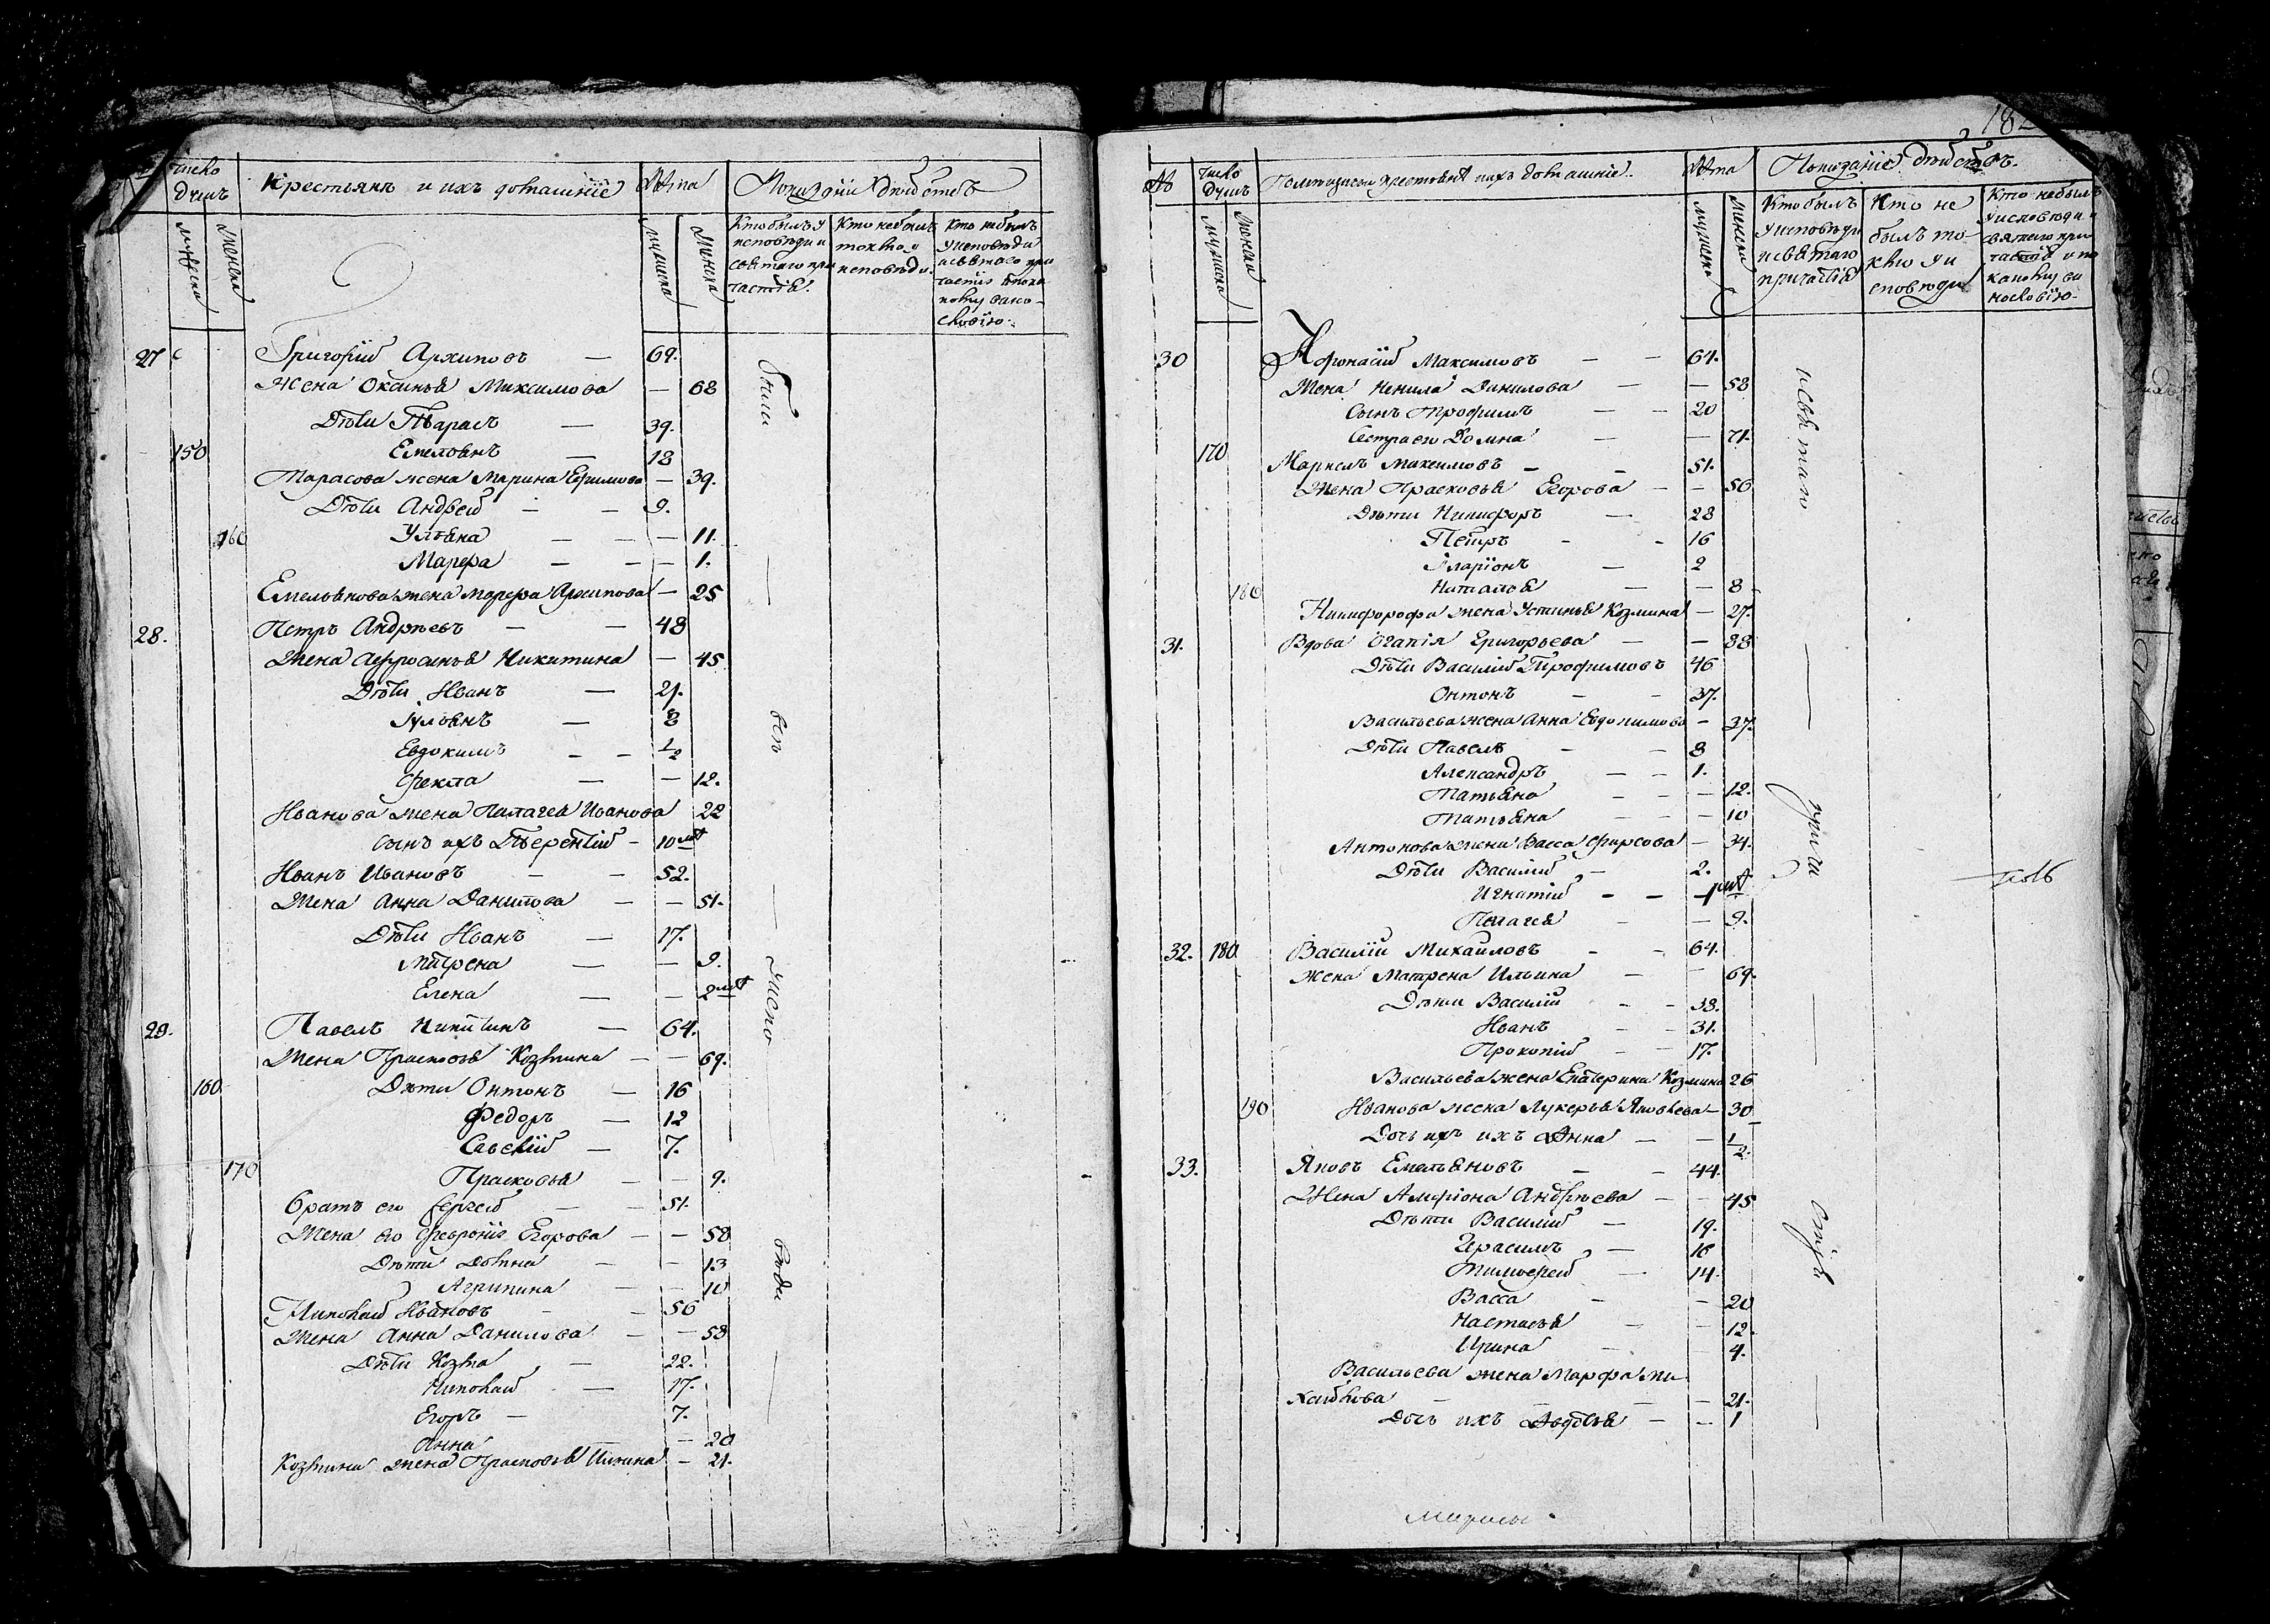 число душъ Крестьянъ и ихъ домашнїе Лѣта Показанїе дѣйствъ
мужеска женска мужеска женска
Кто былъ у исповѣди и святаго причастїя
Кто не былъ токмо у исповѣди
Кто не былъ у исповѣди и святаго причастїя
27 Григорїй Архиповъ — 69.
Жена Оксинья Максимова — 68
Дѣти Тарасъ — 39.
150 Емельянъ — 18
Тарасова жена Марина Ефимова — 39.
Дѣти Андрей — 9.
160 Ульяна — 11.
Марфа — 1.
Емельянова жена Марфа Архипова — 25
28. Петръ Андрѣевъ — 48
Жена Афросинья Никитина — 45
Дѣти Иванъ — 21.
Іульянъ — 8
Евдокимъ — 1/2
Фекла — 12.
Иванова жена Палагея Иванова 22
сынъ ихъ Терентїй — 10 мѣ
Иванъ Ивановъ — 52.
Жена Анна Данилова — 51.
Дѣти Иванъ — 17.
Матрена — 9.
Елена — 2 мѣ
29. Павелъ Никитинъ — 64.
Жена Прасковья Козмина — 69.
160 Дѣти Онтонъ — 16
Федоръ — 12
Савелїй — 7.
170 Прасковья — 9.
братъ его Сергей — 51.
Жена его Феврония Егорова — 58
Дѣти Домна — 13
Агрипина — 10
Николай Ивановъ — 56
Жена Анна Данилова — 58
Дѣти Козма — 22.
Николай — 17.
Егоръ — 7.
Анна — 20
Козмина жена Прасковья Ильина — 21.
были — всѣ — у испо — вѣди —
182
№ число душъ крестьяня и ихъ домашнїе. Лѣта Показанїе дѣйствъ.
мужеска женска мужеска женска
Кто былъ у исповѣди и святаго причастїя
Кто не былъ токмо у исповѣди
Кто не былъ у исповѣди и святаго причастїя и по
30 Афонасїй Максимовъ — 64.
Жена Ненила Данилова — 58
Сынъ Трофимъ — 20
Сестра его Домна — 71.
170 Маркелъ Максимовъ — 51.
Жена Прасковья Егорова — 56
Дѣти Никифоръ — 28
Петръ — 16
Иларїонъ — 2
180 Наталья — 8
Никифорофа жена Устинья Козмина — 27.
31. Вдова Огапїя Григорьева — 88
Дѣти Василий Трофимовъ 46
Онтонъ — 37.
Васильева жена Анна Евдокимова — 37.
Дѣти Павелъ — 8
Александръ — 1.
Татьяна — 12.
Татьяна — 10
Антонова жена Васса Фирсова — 34.
Дѣти Василий — 2.
Игнатїй — 1 мѣ
Пелагея — 9.
32. 180 Василїй Михаиловъ — 64.
Жена Матрена Ильина — 69.
Дѣти Василїй — 38.
Иванъ — 31.
Прокопїй — 17.
Васильева жена Екатерина Козмина 26
190 Иванова жена Лукерья Яковлева — 30
Дочь ихъ Анна — 1/2
33. Яковъ Емельяновъ — 44.
Жена Андрѣева — 45
Дѣти Василий — 19.
Герасимъ — 16
Тимофей — 14.
Васса — 20
Настасья — 12.
Ирина — 4.
Васильева жена Марфа Ми
хайлова — 21.
Дочь ихъ Авдотья — 1
и святаго — прича — стїя —